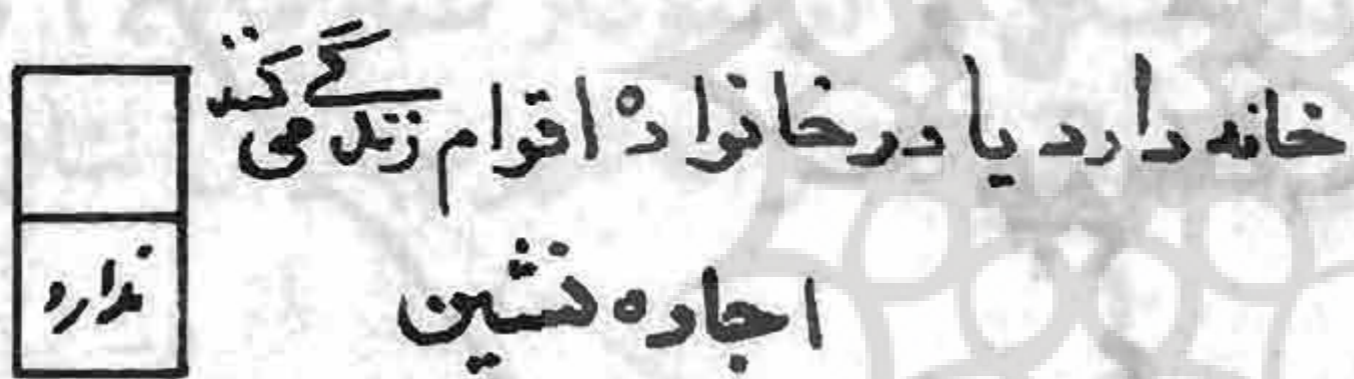 خانه دارد یا در خانوادهٔ اقوام زندگی می کند
اجاره نشین
ندارد